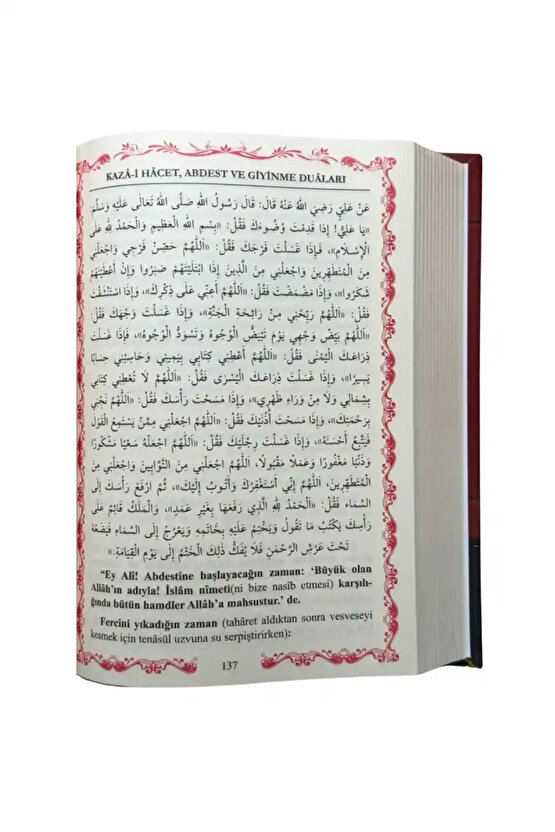 KAZÂ-İ HÂCET, ABDEST VE GİYİNME DUÂLARI
عَنْ عَلِيٍّ رَضِيَ اللهُ عَنْهُ قَالَ: قَالَ رَسُولُ اللهِ صَلَّى اللهُ تَعَالَى عَلَيْهِ وَسَلَّمَ:
«يَا عَلِيُّ! إِذَا قَدِمْتَ وُضُوءَكَ فَقُلْ: «بِسْمِ اللهِ الْعَظِيمِ وَالْحَمْدُ لِلهِ عَلَى
الْإِسْلَامِ»، فَإِذَا غَسَلْتَ فَرْجَكَ فَقُلْ: «اَللّٰهُمَّ حَصِّنْ فَرْجِي وَاجْعَلْنِي
مِنَ الْمُتَطَهِّرِينَ وَاجْعَلْنِي مِنَ الَّذِينَ إِذَا ابْتَلَيْتَهُمْ صَبَرُوا وَإِنْ أَعْطَيْتَهُمْ
شَكَرُوا»، وَإِذَا مَضْمَضْتَ فَقُلْ: «اَللّٰهُمَّ أَعِنِّي عَلَى ذِكْرِكَ»، وَإِذَا اسْتَنْشَقْتَ
فَقُلْ: «اَللّٰهُمَّ رَيِّحْنِي مِنْ رَائِحَةِ الْجَنَّةِ»، وَإِذَا غَسَلْتَ وَجْهَكَ فَقُلْ:
«اَللّٰهُمَّ بَيِّضْ وَجْهِي يَوْمَ تَبْيَضُّ الْوُجُوهُ وَتَسْوَدُّ الْوُجُوهُ»، فَإِذَا غَسَلْتَ
ذِرَاعَكَ الْيُمْنَى فَقُلْ: «اَللّٰهُمَّ أَعْطِنِي كِتَابِي بِيَمِينِي وَحَاسِبْنِي حِسَابًا
يَسِيرًا»، وَإِذَا غَسَلْتَ ذِرَاعَكَ الْيُسْرَى فَقُلْ: «اَللّٰهُمَّ لَا تُعْطِنِي كِتَابِي
بِشِمَالِي وَلَا مِنْ وَرَاءِ ظَهْرِي»، وَإِذَا مَسَحْتَ رَأْسَكَ فَقُلْ: «اَللّٰهُمَّ نَجِّنِي
بِرَحْمَتِكَ»، وَإِذَا مَسَحْتَ أُذُنَيْكَ فَقُلْ: «اَللّٰهُمَّ اجْعَلْنِي مِمَّنْ يَسْتَمِعُ الْقَوْلَ
فَيَتَّبِعُ أَحْسَنَهُ»، وَإِذَا غَسَلْتَ رِجْلَيْكَ فَقُلْ: «اَللّٰهُمَّ اجْعَلْهُ سَعْيًا مَشْكُورًا
وَذَنْبًا مَغْفُورًا وَعَمَلًا مَقْبُولًا، اَللّٰهُمَّ اجْعَلْنِي مِنَ التَّوَّابِينَ وَاجْعَلْنِي مِنَ
الْمُتَطَهِّرِينَ، اَللّٰهُمَّ إِنِّي أَسْتَغْفِرُكَ وَأَتُوبُ إِلَيْكَ»، ثُمَّ ارْفَعْ رَأْسَكَ إِلَى
السَّمَاءِ فَقُلْ: «اَلْحَمْدُ لِلهِ الَّذِي رَفَعَهَا بِغَيْرِ عَمَدٍ»، وَالْمَلَكُ قَائِمٌ عَلَى
رَأْسِكَ يَكْتُبُ مَا تَقُولُ وَيَخْتِمُ عَلَيْهِ بِخَاتَمِهِ وَيَعْرُجُ إِلَى السَّمَاءِ فَيَضَعُهُ
تَحْتَ عَرْشِ الرَّحْمٰنِ فَلَا يُفَكُّ ذٰلِكَ الْخَتْمُ إِلَى يَوْمِ الْقِيَامَةِ.»
“Ey Alî! Abdestine başlayacağın zaman: ‘Büyük olan
Allâh’ın adıyla! İslâm nîmeti(ni bize nasîb etmesi) karşılı-
ğında bütün hamdler Allâh’a mahsustur.’ de.
Fercini yıkadığın zaman (tahâret aldıktan sonra vesveseyi
kesmek için tenâsül uzvuna su serpiştirirken):
137